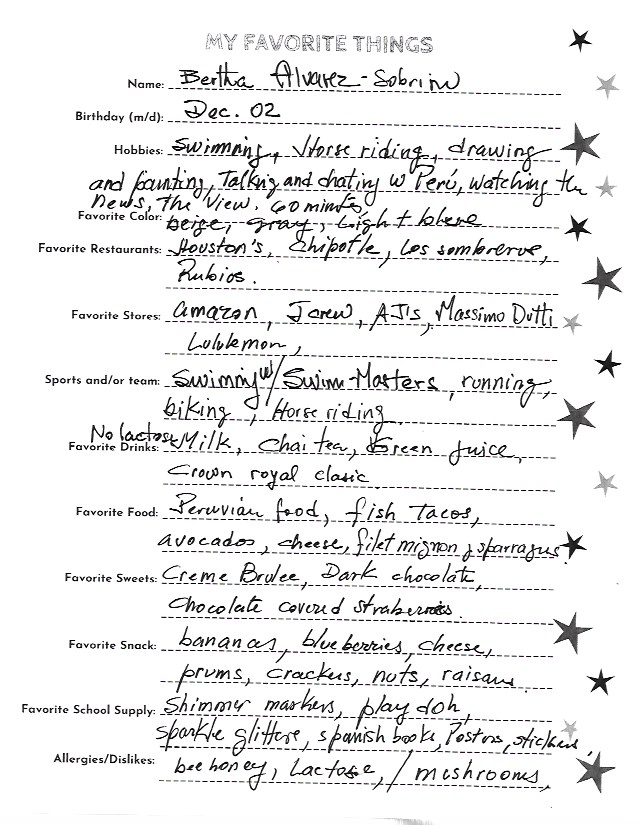 MY FAVORITE THINGS
Name: Bertha Alvarez-Sobrino
Birthday (m/d): Dec. 02
Hobbies: Swimming, Horse riding, drawing
and painting, Talking and chating w Perú, watching the
News, The View. 60 minutes,
Favorite Color: beige, gray, Light blue
Favorite Restaurants: Houston's, Chipotle, Los sombreros,
Rubios.
Favorite Stores: amazon, Jcrew, AJ's, Massimo Dutti
Lululemon,
Sports and/or team: Swimming w/ Swim-Masters, running,
biking, Horse riding.
Favorite Drinks: No lactose Milk, Chai tea, Green juice,
Crown royal clasic
Favorite Food: Peruvian food, fish Tacos,
avocados, cheese, filet mignon, sparragus
Favorite Sweets: Creme Brulee, Dark chocolate,
Chocolate covered straberries.
Favorite Snack: bananas, blueberries, cheese,
prums, crackers, nuts, raisans
Favorite School Supply: Shimmer markers, play doh,
sparkle glitters, spanish books, Posters, stickers,
Allergies/Dislikes: bee honey, Lactose, / mushrooms,